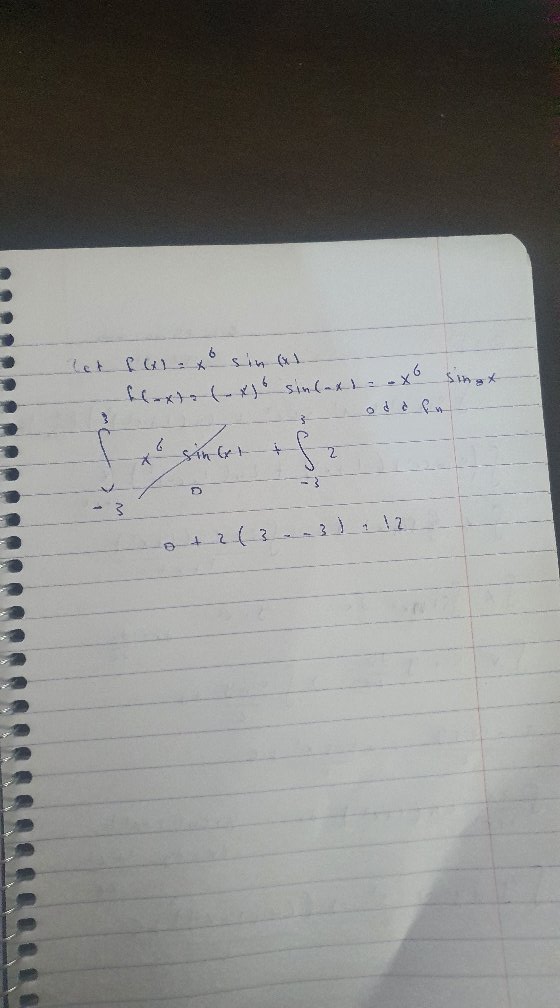 Let f(x) = x⁶ sin(x)
f(-x) = (-x)⁶ sin(-x) = -x⁶ sin x
odd fn
∫₋₃³ x⁶ sin(x) + ∫₋₃³ 2
0
0 + 2(3 - -3) = 12